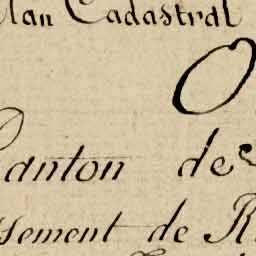 lan Cadastral
O
anton de
ssement de R